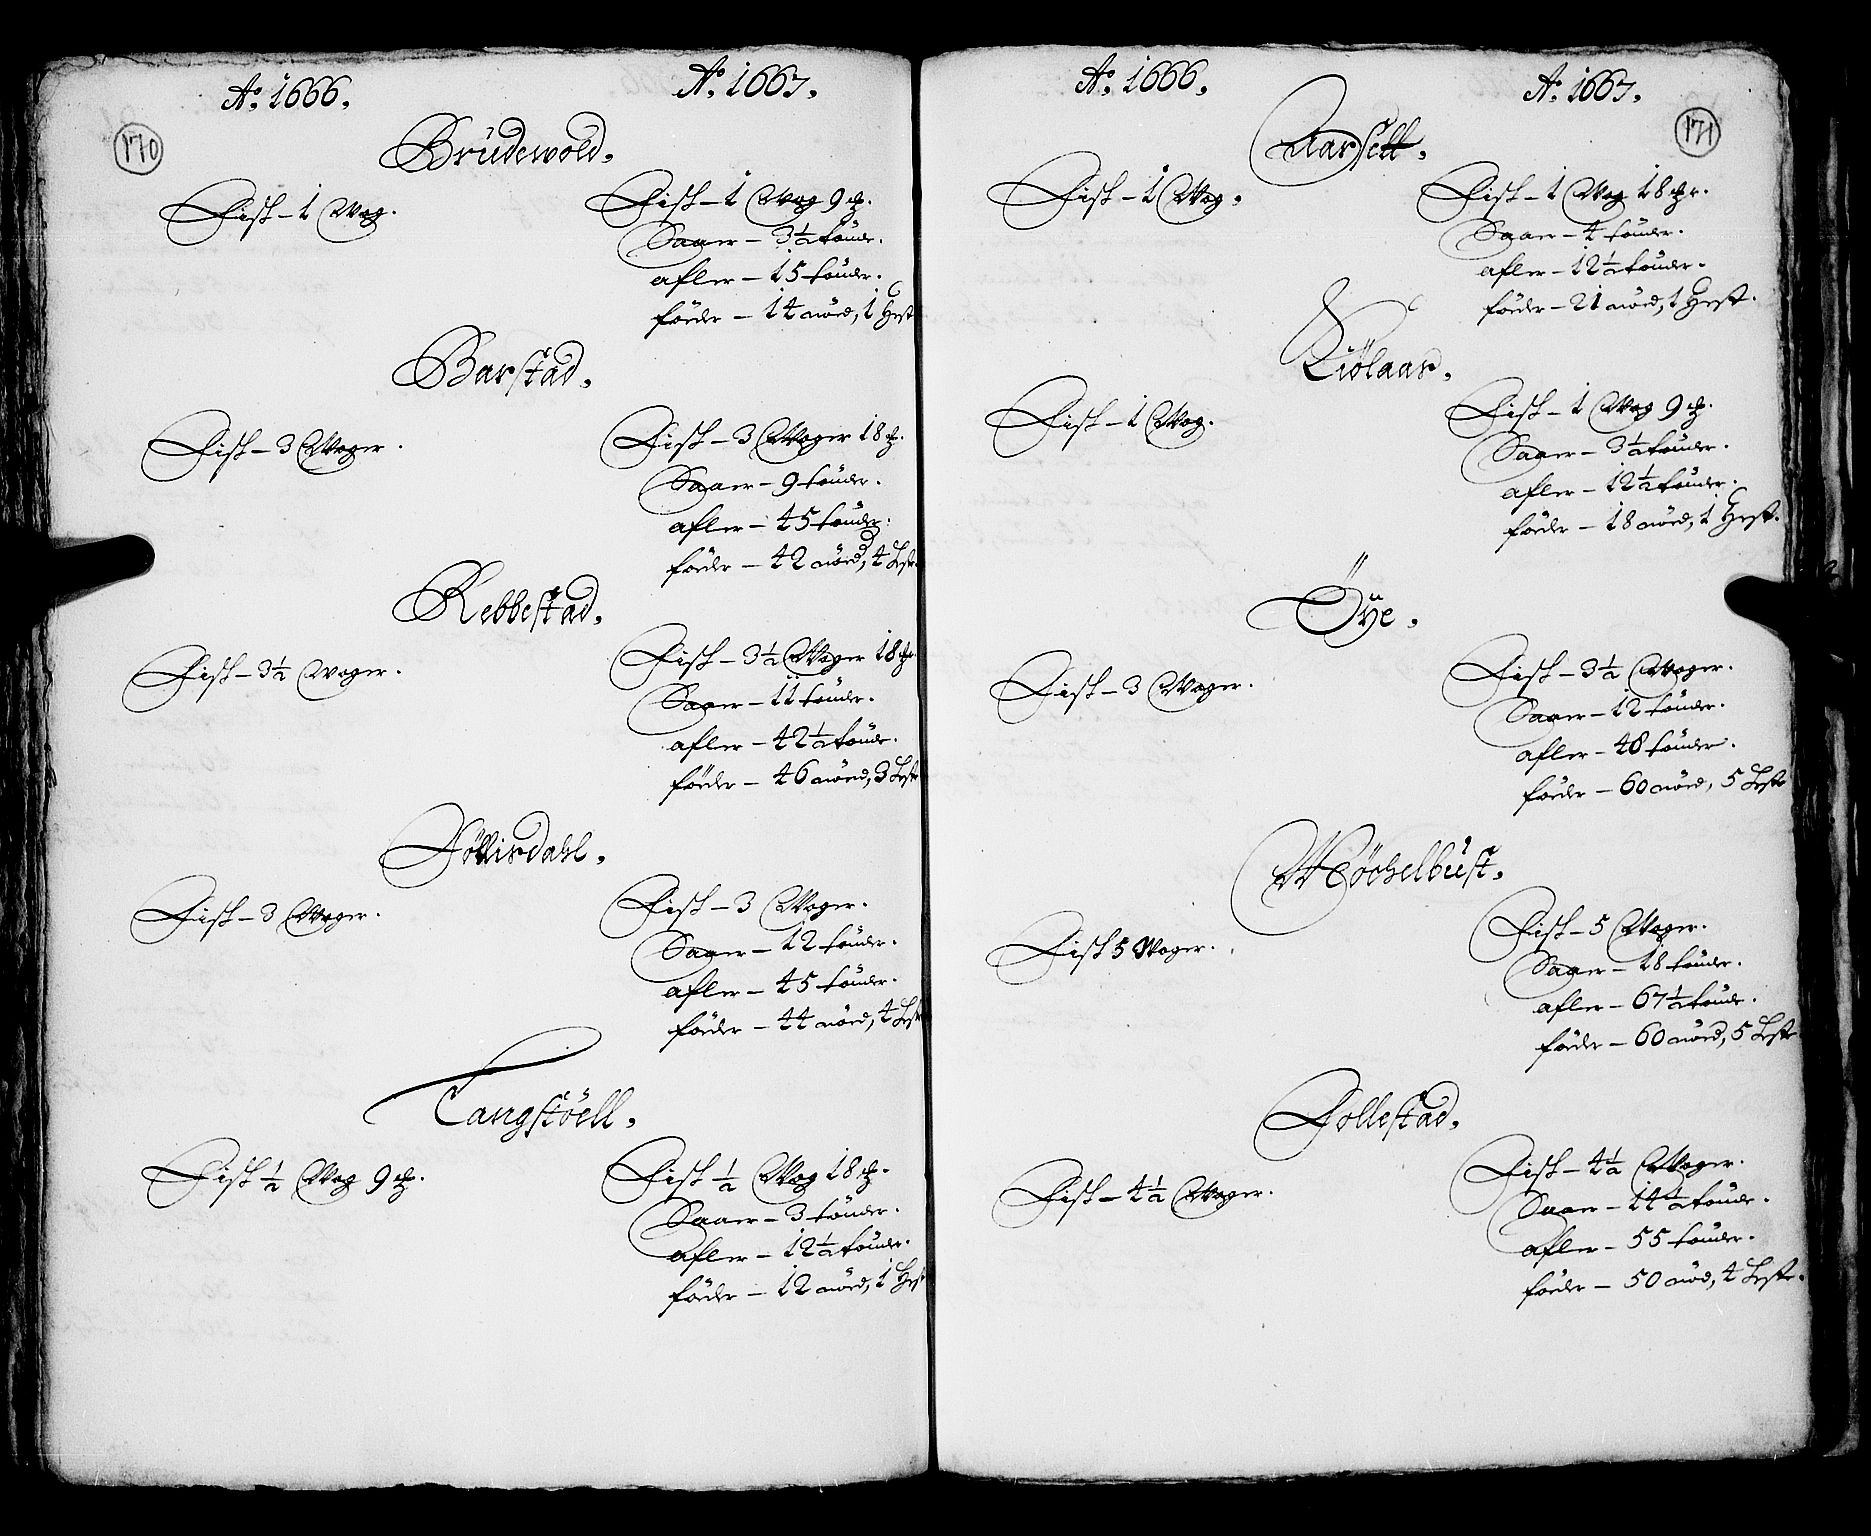 170
Ao. 1666.
Ao. 1667.
Brüdewold.
Fisk - 1 Wog.
Fisk - 1 Wog 9 ℔.
Saaer - 3½ tönder.
afler - 15 tönder.
föeder - 14 nöed, 1 Hest
Barstad.
Fisk - 3 Woger.
Fisk - 3 Woger 18 ℔.
Saaer - 9 tönder.
afler - 45 tönder.
föeder - 42 nöed, 4 Heste.
Rebbestad.
Fisk - 3½ Woger.
Fisk - 3½ Woger 18 ℔.
Saaer - 11 tönder.
afler - 42½ tönder.
föeder - 46 nöed, 3 Heste
Föllisdahl.
Fisk - 3 Woger.
Fisk - 3 Woger.
Saaer - 12 tönder.
afler - 45 tönder.
föeder - 44 nöed, 4 Heste
Langstöell.
Fisk ½ Wog 9 ℔.
Fisk ½ Wog 18 ℔.
Saaer - 3 tönder.
afler - 12½ tönder.
föeder - 12 nöed, 1 Hest
171
Ao. 1666.
Ao. 1667.
Aarsett.
Fisk - 1 Wog.
Fisk - 1 Wog 18 ℔r.
Saaer - 4 tönder.
afler - 12½ tönder.
föeder - 21 nöed, 1 Hest.
Kiölaas.
Fisk - 1 Wog.
Fisk - 1 Wog 9 ℔.
Saaer - 3½ tönder.
afler - 12½ tönder.
föeder - 18 nöed, 1 Hest.
Öÿe.
Fisk - 3 Woger.
Fisk - 3½ Woger.
Saaer - 12 tönder.
afler - 48 tönder.
föeder - 60 nöed, 5 Heste
Möchelbüst.
Fisk 5 Woger.
Fisk - 5 Woger.
Saaer - 18 tönder.
afler - 67½ tönder.
föeder - 60 nöed, 5 Heste
Follestad.
Fisk - 4½ Woger.
Fisk - 4½ Woger.
Saaer - 14½ tönder.
afler - 55 tönder.
föeder - 50 nöd, 4 Heste.